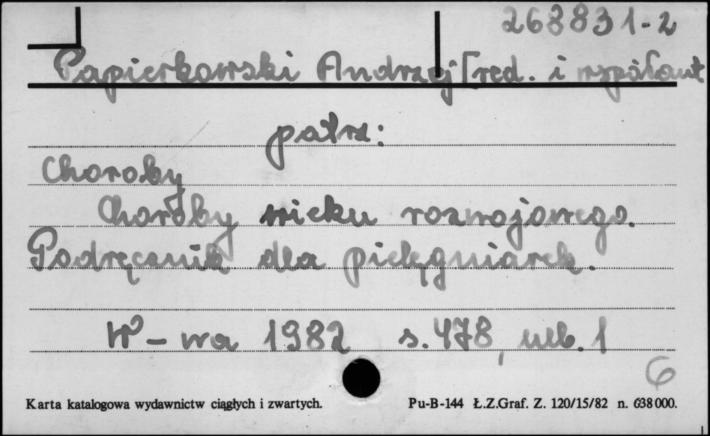 268831-2
Papierkowski Andrzej [red. i współaut
patrz:
Choroby
Choroby wieku rozwojowego.
Podręcznik dla pielęgniarek.
W-wa 1982 s. 478, nlb. 1
6
Karta katalogowa wydawnictw ciągłych i zwartych. Pu-B-144 Ł.Z.Graf. Z. 120/15/82 n. 638000.